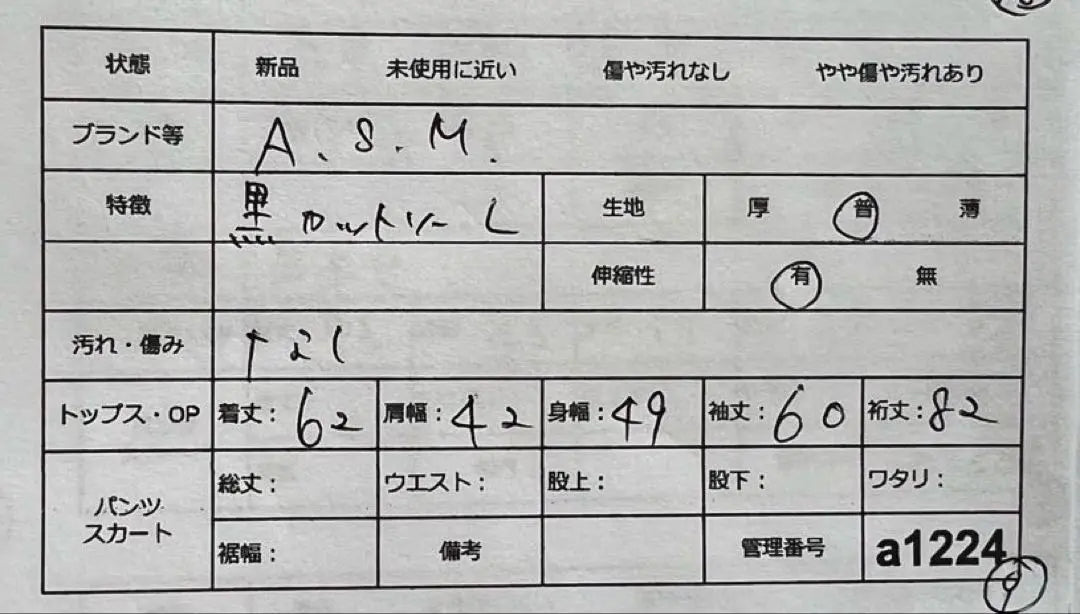 状態 新品 未使用に近い 傷や汚れなし やや傷や汚れあり
ブランド等 A.S.M.
特徴 黒 カットソー L 生地 厚 普 薄
伸縮性 有 無
汚れ・傷み なし
トップス・OP 着丈:62 肩幅:42 身幅:49 袖丈:60 裄丈:82
パンツ
スカート
総丈: ウエスト: 股上: 股下: ワタリ:
裾幅: 備考 管理番号 a1224